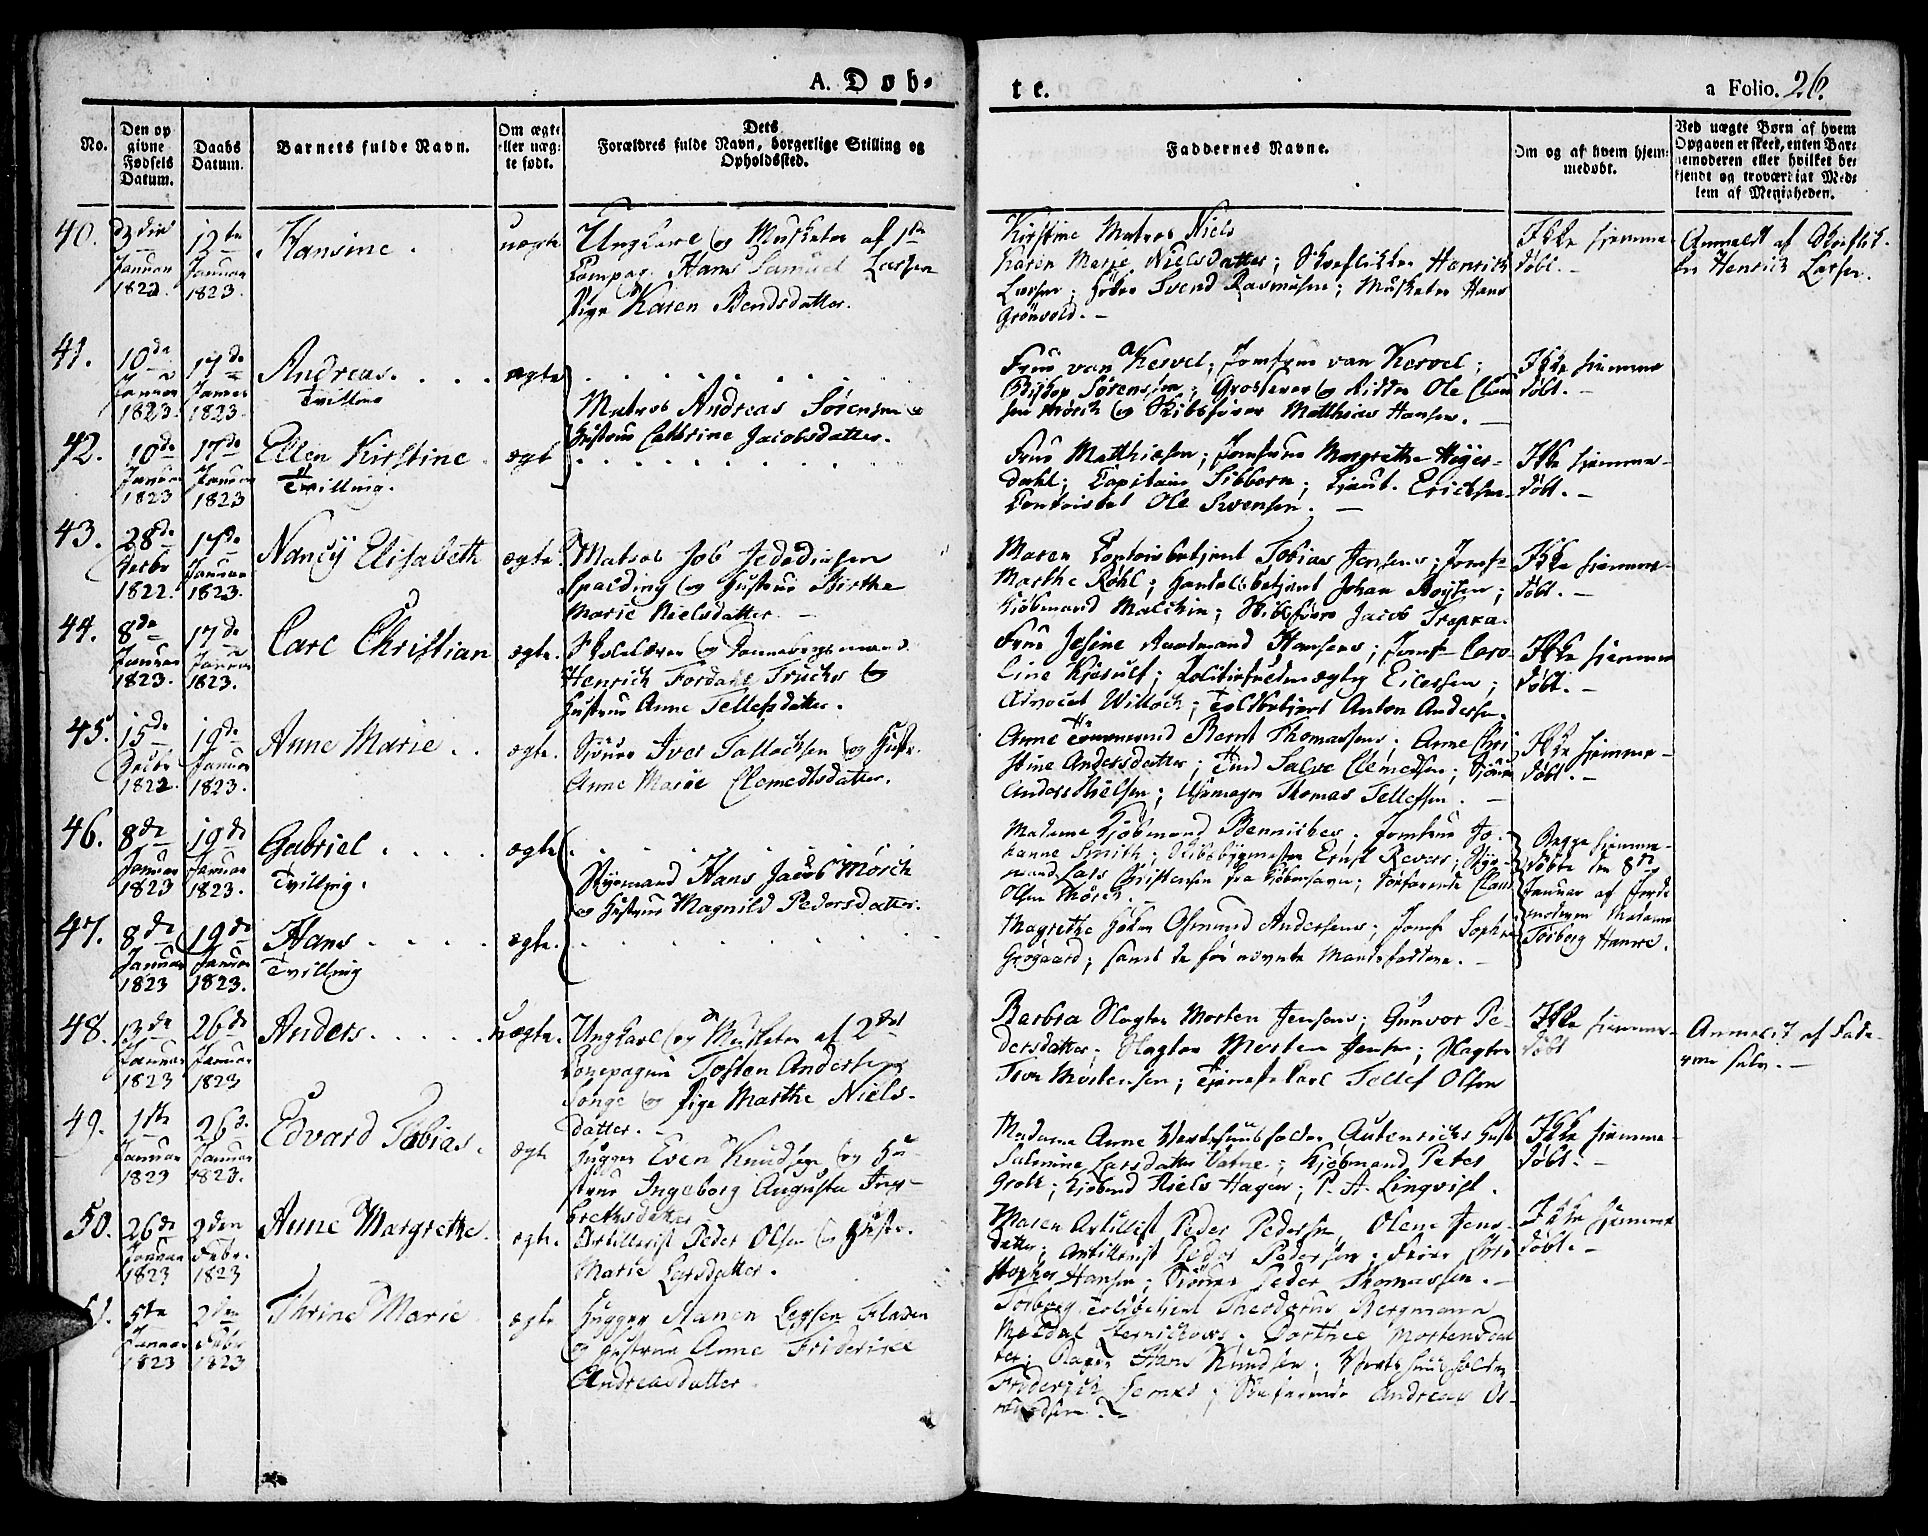 A. Døb-
te.
a Folio. 26.
No.
Den op
givne
Fødsels
Datum.
Daabs
Datum.
Barnets fulde Navn.
Om ægte
eller uæg-
te født.
Dets
Forældres fulde Navn, borgerlige Stilling og
Opholdssted.
Faddernes Navne.
Om og af hvem hjem-
medøbt.
Ved uægte Børn af hvem
Opgaven er skeet, enten Bar-
nemoderen eller hvilket be-
kjendt og troværdigt Med-
lem af Menigheden.
40.
Januar
12te
Januar
1823.
Hansine
uægte
Ungkarl og Musketer af 1ste
Compag. Hans Samuel Larsen
Pige Karen
Kirstine Matros Niels
Karen Marie Nielsdatter; Henrich
Larsen; Svend Rasmusen; Musketer Hans
Grönvold.
Ikke hjemme-
döbt.
Anmeldt af
Henrich Larsen.
41.
10de
Januar
1823.
17de
Januar
1823.
Andreas.
Tvilling
ægte
Matros Andreas Sörensen og
Hustrue Cathrine Jacobsdatter.
Frue van Kervel; Jomfrue van Kervel;
Biskop Sörensen; Grosserer og Ridder Ole Clau-
sen Mörch og Skibsförer Matthias Hansen.
Ikke hjemme
döbt.
42.
10de
Januar
1823
17de
Januar
1823
Ellen Kirstine
Tvilling.
ægte
Frue Matthiesen; Jomfrue Margrethe Heyer-
dahl; Capitain Sibbern; Lieut. Erichsen
Ole Svensen.
Ikke hjemme-
döbt.
43.
28de
Decbr
1822.
17de
Januar
1823.
Nancÿ Elisabeth
ægte.
Matros Job Jedediasen
Spalding og Hustrue Birthe
Marie Nielsdatter
Maren Contoirbetjent Tobias Jensens; Jomf.
Marthe Röhl; Handelsbetjent Johan Boysen;
Kjöbmand Malchin; Skibsförer Jacob
Ikke hjemme-
döbt.
44.
8de
Januar
1823.
17de
Januar
1823.
Carl Christian
ægte.
Skolelærer og Dannebrogsmand
Henrich Fordahl Fuchs og
Hustrue Anne Tellefsdatter.
Frue Jesine Raadmand Hansens; Jomf. Caro-
line Kjerulf;
Advocat Willoch; Toldbetjent Anton Andersen.
Ikke hjemme
döbt.
45.
15de
Decbr
1822.
19de
Januar
1823.
Anne Marie
ægte.
Iver Tallachsen og Hustr.
Anne Marie Clemedtsdatter.
Anne Tömmermand Bernt Thomassens; Anne Chri-
stine Andersdatter; Salve Clemedsen;
Anders Nielsen; Thomas Tellefsen.
Ikke hjemme-
döbt.
46.
8de
Januar
1823
19de
Januar
1823.
Gabriel
Tvilling.
ægte
Styrmand Hans Jacob Mörch
og Hustrue Magnild Pedersdatter.
Madame Kjöbmand Jomfrue Jo-
hanne Smith; Skibsbygmester Ernst Styr-
mand Lars Christensen fra Kjöbenhavn; Söefarende Claus
Olsen Mörch.
Begge hjemme-
döbte den 8de
Januar af Jorde-
moderen Madame
Torborg Hansen.
47.
8de
Januar
1823
19de
Januar
1823.
Hans
Tvilling
ægte.
Magrethe Osmund Andersens; Jomf. Sophie
Grögaard; samt de för nævnte Mandsfaddere.
48.
13de
Januar
1823
26de
Januar
1823
Anders
uægte.
Ungkarl og Musketer af 2det
Compagnie Tosten Andersen
Songe og Pige Marthe Niels-
datter.
Barbra Slagter Morten Jensens; Gunvor Pe-
dersdatter; Slagter Morten Jensen; Slagter
Iver Mortensen; Tjenestekarl Tellef Olsen
Ikke hjemme-
döbt
Anmeldt af Fade-
ren selv.
49.
1ste
Januar
1823
26de
Januar
1823.
Edvard Tobias.
ægte
Hugger Even Knudsen og Hu-
strue Ingeborg Augusta Inge-
brethsdatter
Madame Anne Vertshuusholder Autenrieths;
Salmine Larsdatter Vatne; Kjöbmand Peter
Groth; Kjöbmd Niels Hagen; P. A. Linqvist.
Ikke hjemme-
döbt.
50.
26de
Januar
1823
2den
Febr.
1823
Anne Margrethe.
ægte.
Artillerist Peder Olsen og Hustr.
Marie Larsdatter.
Maren Artillerist Peder Pedersen, Olene Jens-
datter; Artillerist Peder Pedersen; Chri-
stopher Hansen; Peder Thomassen.
Ikke hjemme
döbt.
51.
5te
Januar
1823
2den
Febr
1823
Thrine Marie
ægte
Hugger Nanen Leysen Fladen
og Hustrue Anne Friderike
Andreasdatter
Torborg Toldbetjent Theodorus Bergmann
Dorthee Mortensdat-
ter; Hans Knudsen; Vertshuusholder
Friderich Lemkes; Andreas